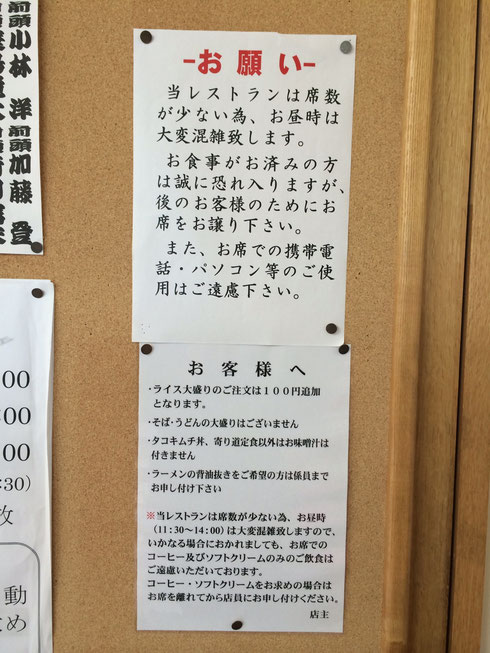 -お願い-
当レストランは席数
が少ない為、お昼時は
大変混雑致します。
お食事がお済みの方
は誠に恐れ入りますが、
後のお客様のためにお
席をお譲り下さい。
また、お席での携帯電
話・パソコン等のご使
用はご遠慮下さい。
お客様へ
・ライス大盛りのご注文は１００円追加
となります。
・そば・うどんの大盛りはございません
・タコキムチ丼、寄り道定食以外はお味噌汁は
付きません
・ラーメンの背油抜きをご希望の方は係員まで
お申し付け下さい
※当レストランは席数が少ない為、お昼時
(11:30～14:00)は大変混雑致しますので、
いかなる場合におかれましても、お席での
コーヒー及びソフトクリームのみのご飲食は
ご遠慮いただいております。
コーヒー・ソフトクリームをお求めの場合は
お席を離れてから店員にお申し付けください。
店主
前頭加藤登
前頭小林洋
00
:00
00
:30)
枚
動
め